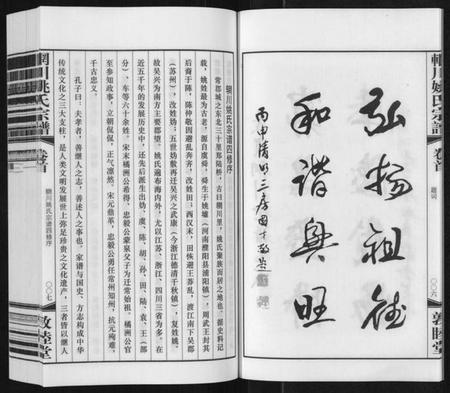 輞川姚氏宗譜
卷首
題詞
〇〇六
敦睦堂
弘揚祖德
和諧興旺
丙申清明三房國才敬書
輞川姚氏宗譜四修序
常郡城之东北三十里郑陆桥，古曰輞川里，姚氏聚族而居之地也。据史料记
载，姚姓最为古老，源自虞舜，舜生于姚墟（河南濮阳县浦阳镇），周武王封其
后裔于陈，陈仲敬因避乱奔齐，改姓田；西汉末，田恢避王莽乱，渡江南下吴郡
（苏州），改姓妫；五世妫敷再迁吴兴之武康（今浙江德清千秋镇），复姓姚。
故吴兴为南方主要郡望。姚氏遍布海内外，尤以江苏、浙江、四川三省为多。在
近五千年的发展历史中，还先后派生出妫、虞、陈、胡、孙、田、陆、袁、王（部
分）、车等六十余姓。宋末橘洲公希得、忠毅公訔吴父子为迁常始祖。橘洲公官
至参知政事，立朝侃侃，正气凛然，宋元鼎革，忠毅公勇任常州知州，抗元殉难，
千古忠义。
孔子曰：夫孝者，善继人之志，善述人之事也。家谱与国史、方志构成中华
传统文化之三大支柱，是人类文明发展世上弥足珍贵之文化遗产，三者皆以继人
輞川姚氏宗譜
卷首
輞川姚氏宗譜四修序
〇〇七
敦睦堂